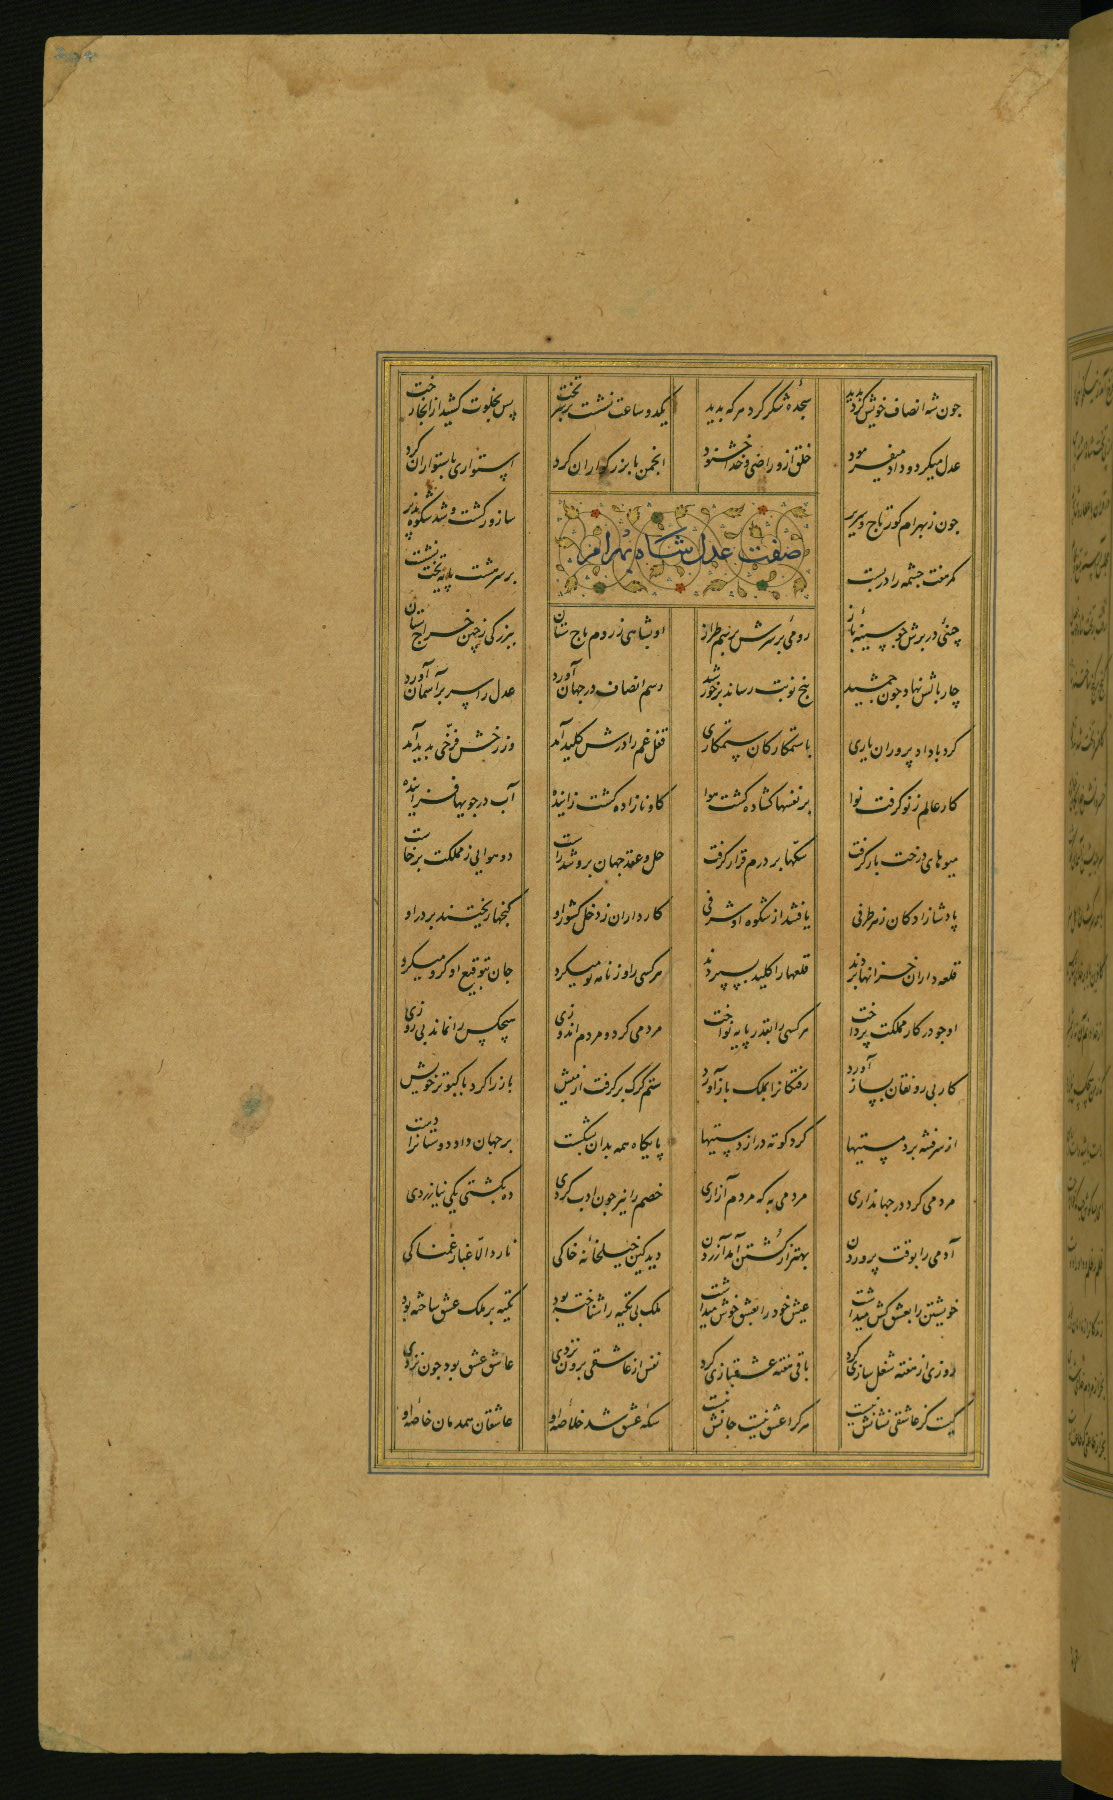 چون شه انصاف خویش کرد پدید سجدهٔ شکر کرد هر که بدید یکدو ساعت نشست بر سر تخت پس بخلوت کشید از آنجا رخت
عدل میکرد و داد میفرمود خلق ازو راضی و خدا خشنود انجمن با بزرگواران کرد استواری باستواران کرد
صفت عدل شاه بهرام
جون ز بهرام کور تاج و سریر سازور کشت و شد شکوه پذیر
کمر هفت جشمه را در بست بر سر هشت پایه تخت نشست
چینئی در برش جو سینهٔ باز رومئی بر سرش برسم طراز او بشاهی ز روم باج ستان ببزرکی ز چین خراج ستان
چار بالش نهاد جون جمشید پنج نوبت رساند بر خورشید رسم انصاف در جهان آورد عدل را سر بر آسمان آورد
کرد با داد پروران یاری با ستمکارکان ستمکاری قفل غم را درش کلید آمد وز رخش فرّخی بدید آمد
کار عالم ز نو کرفت نوا بر نفسها کشاده کشت هوا کاو نازاده کشت زاینده آب در جویها فزاینده
میوهای درخت بار کرفت سکّها بر درم قرار کرفت حل و عقد جهان برو شد راست دو هوایی ز مملکت برخاست
پادشا زادکان ز هر طرفی یافتند از شکوه او شرفی کارداران ز دخل کشور او کنجها ریختند بر در او
قلعه داران خزانها بردند قلعها را کلید بسپردند هر کسی را و ز نامه نو میکرد جان بتوقیع او کرو میکرد
او جو در کار مملکت پرداخت هر کسی را بقدر پایه نواخت مردمی کرد و مردم اندوزی هیچکس را نماند بی روزی
کار بی رونقان بساز آورد رفتکانرا بملک باز آورد ستم کرک بر کرفت از میش باز را کرد با کبوتر خویش
از سر فتنه برد مستیها کرد کوته دراز دستیها پایکاه همه بدان بشکست بر جهان داد دوستانرا دست
مردمی کرد در جهانداری مردمی به که مردم آزاری خصم را نیز جون ادب کردی ده بکشتی یکی نیازردی
آدمی را بوقت پروردن بهتر از کشتن آمد آزردن دید کین خیلخانهٔ خاکی نارد الّا غبار غمناکی
خویشتن را بعشق کش میداشت عیش خود را بعشق خوش میداشت ملک بی تکیه را شناخته بود تکیه بر ملک عشق ساخته بود
روزی از هفته شغل سازی کرد باقی هفته عشقبازی کرد نفس از عاشقی برون نزدی عاشق عشق بود جون نزدی
کیست کز عاشقی نشانش نیست هر کرا عشق نیست جانش نیست سکّه عشق شد خلاصهٔ او عاشقان همدمان خاصهٔ او